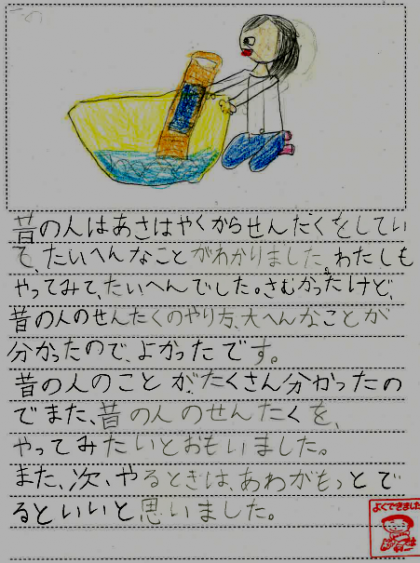 昔の人はあさはやくからせんたくをしてい
て、たいへんなことがわかりました。わたしも
やってみて、たいへんでした。さむかったけど、
昔の人のせんたくのやり方、大へんなことが
分かったので、よかったです。
昔の人のことが、たくさん分かったの
でまた、昔の人のせんたくを、
やってみたいとおもいました。
また、次、やるときは、あわがもっとで
るといいと思いました。
よくできました